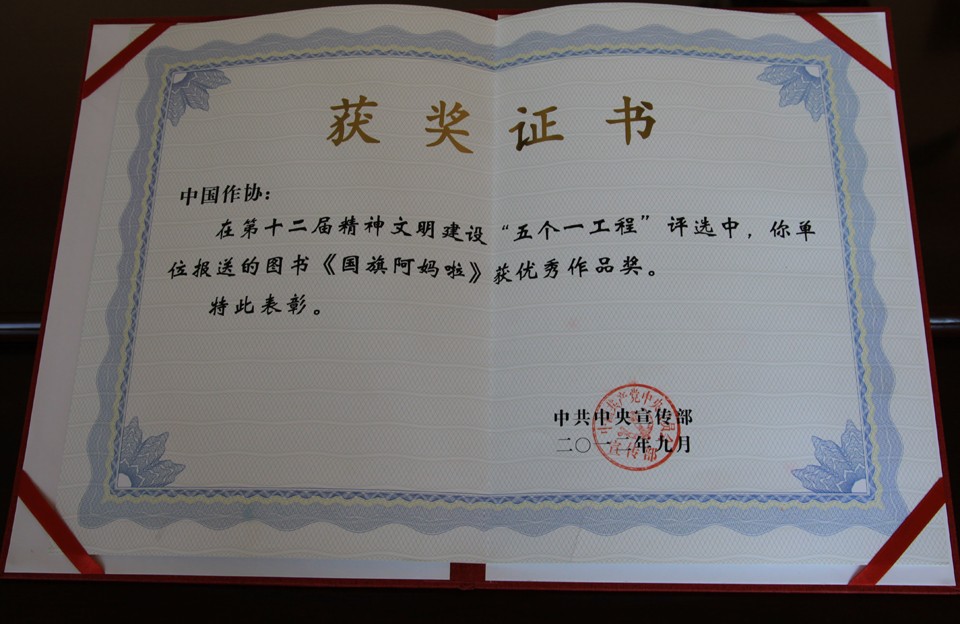 获奖证书
中国作协：
在第十二届精神文明建设“五个一工程”评选中，你单
位报送的图书《国旗阿妈啦》获优秀作品奖。
特此表彰。
中共中央宣传部
二〇一二年九月